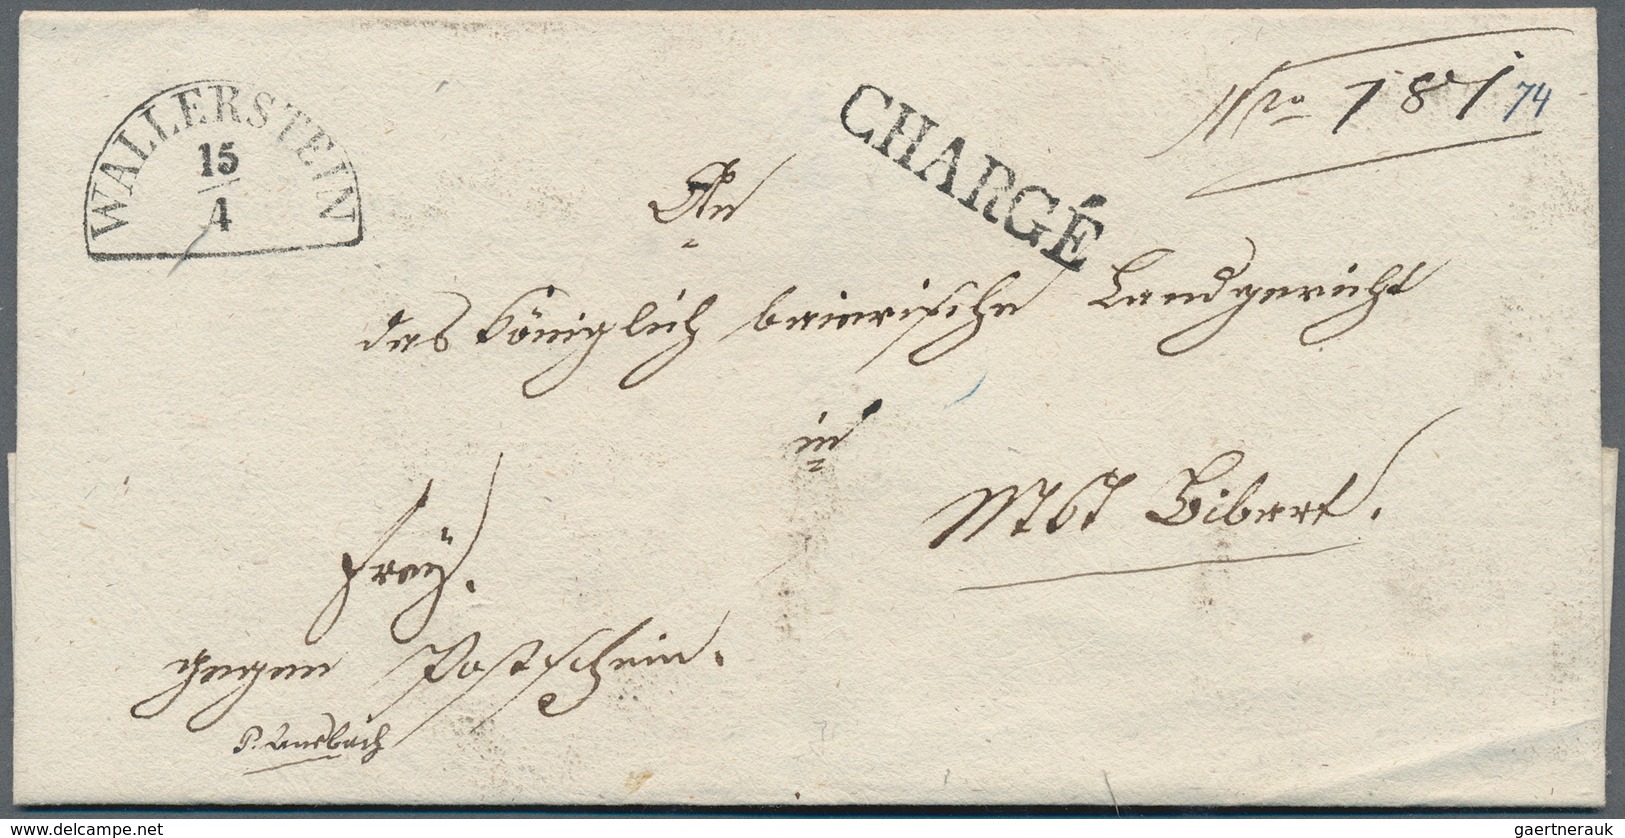 WALLERSTEIN
15
4
CHARGÉ
Nro 787
74
An
das Königlich baierische Landgericht
in
Mkt Bibert.
frey.
gegen Postschein.
p. Ansbach
www.delcampe.net
gaertnerauk